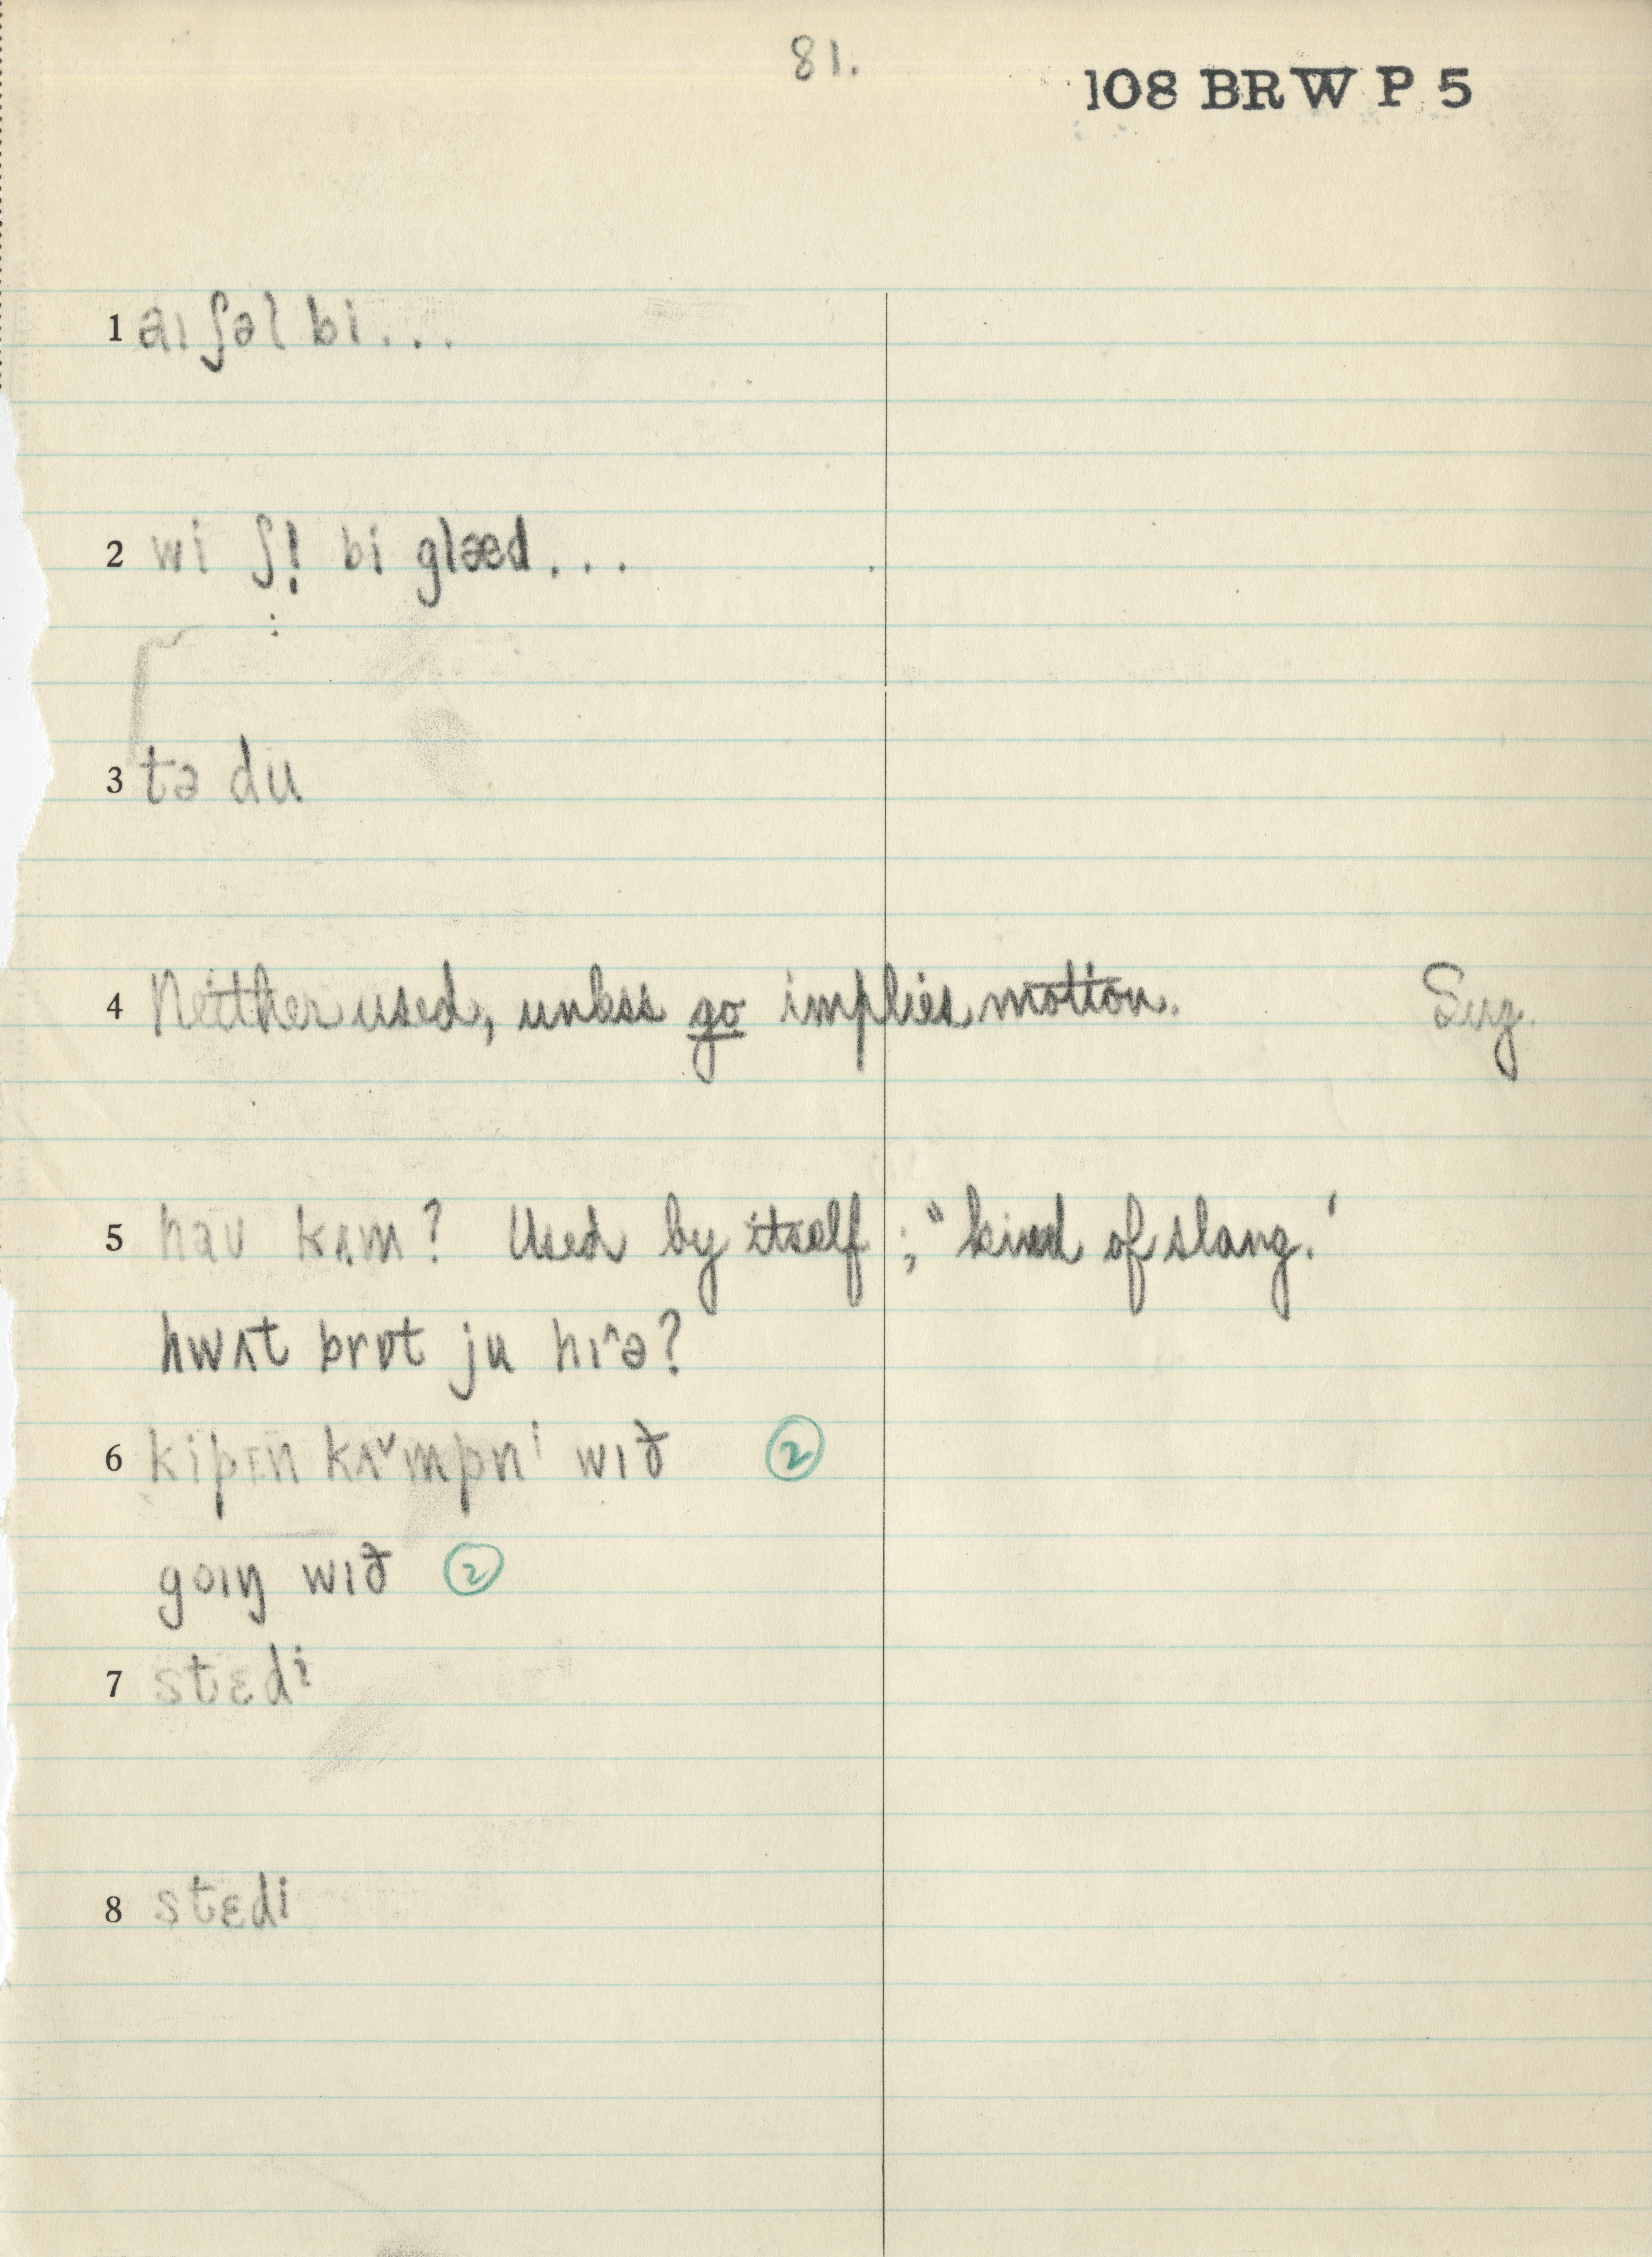 81.
108 BRW P 5
1 aɪ ʃəl bi...
2 wi ʃl̩ bi glæd...
3 tə du
4 Neither used, unless go implies motion. Sug.
5 haʊ kʌm? Used by itself; "kind of slang."
hwʌt brɒt ju hɪ^ə?
6 kipɪn kʌ˅mpnⁱ wɪð ②
goɪŋ wɪð ②
7 stɛdi
8 stɛdi